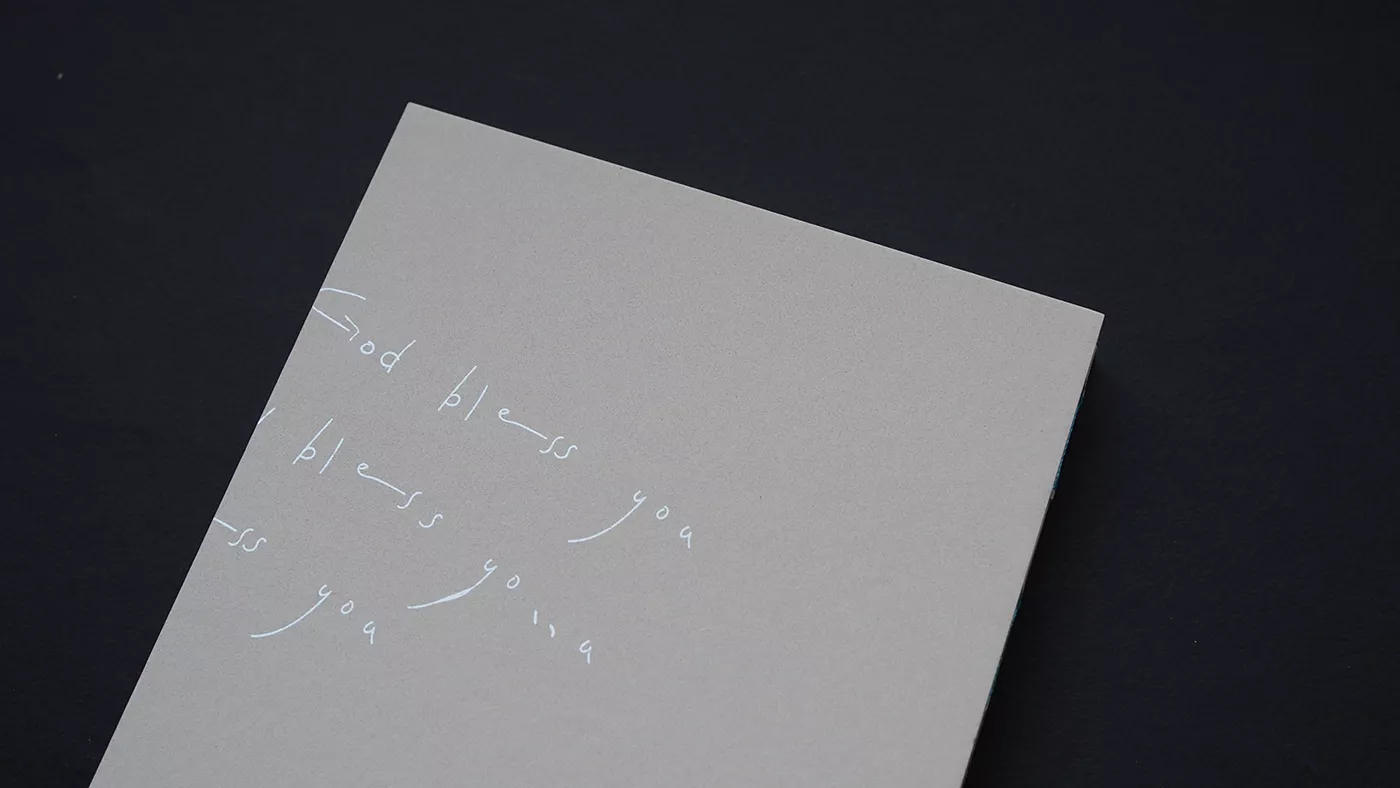 God bless you
bless yo᎐᎐a
ss you